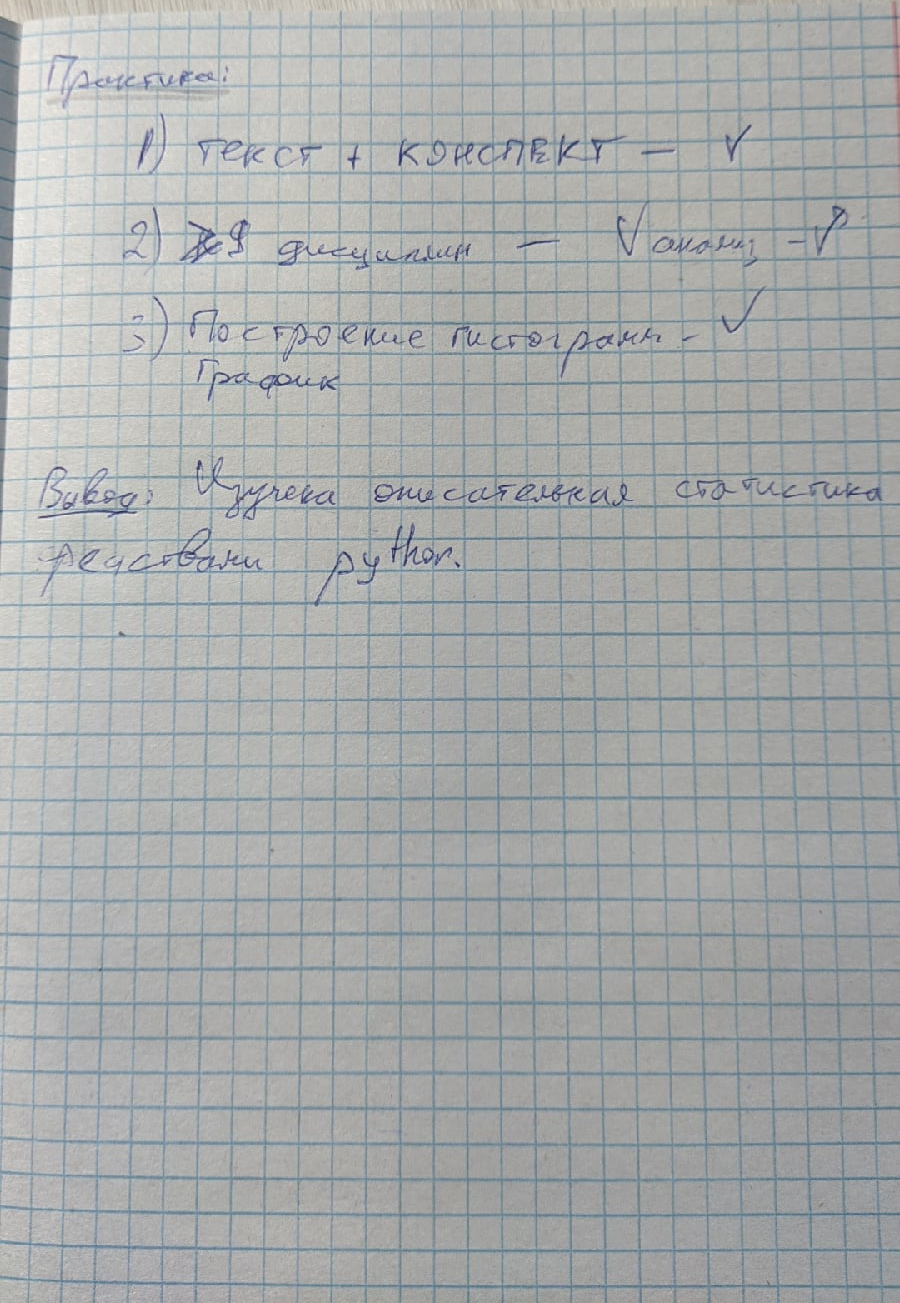 Практика:
1) текст + конспект - ✓
2) 9 дисциплин — ✓ анализ - ✓
3) Построение гистограмм - ✓
График
Вывод: Изучена описательная статистика
редствами python.